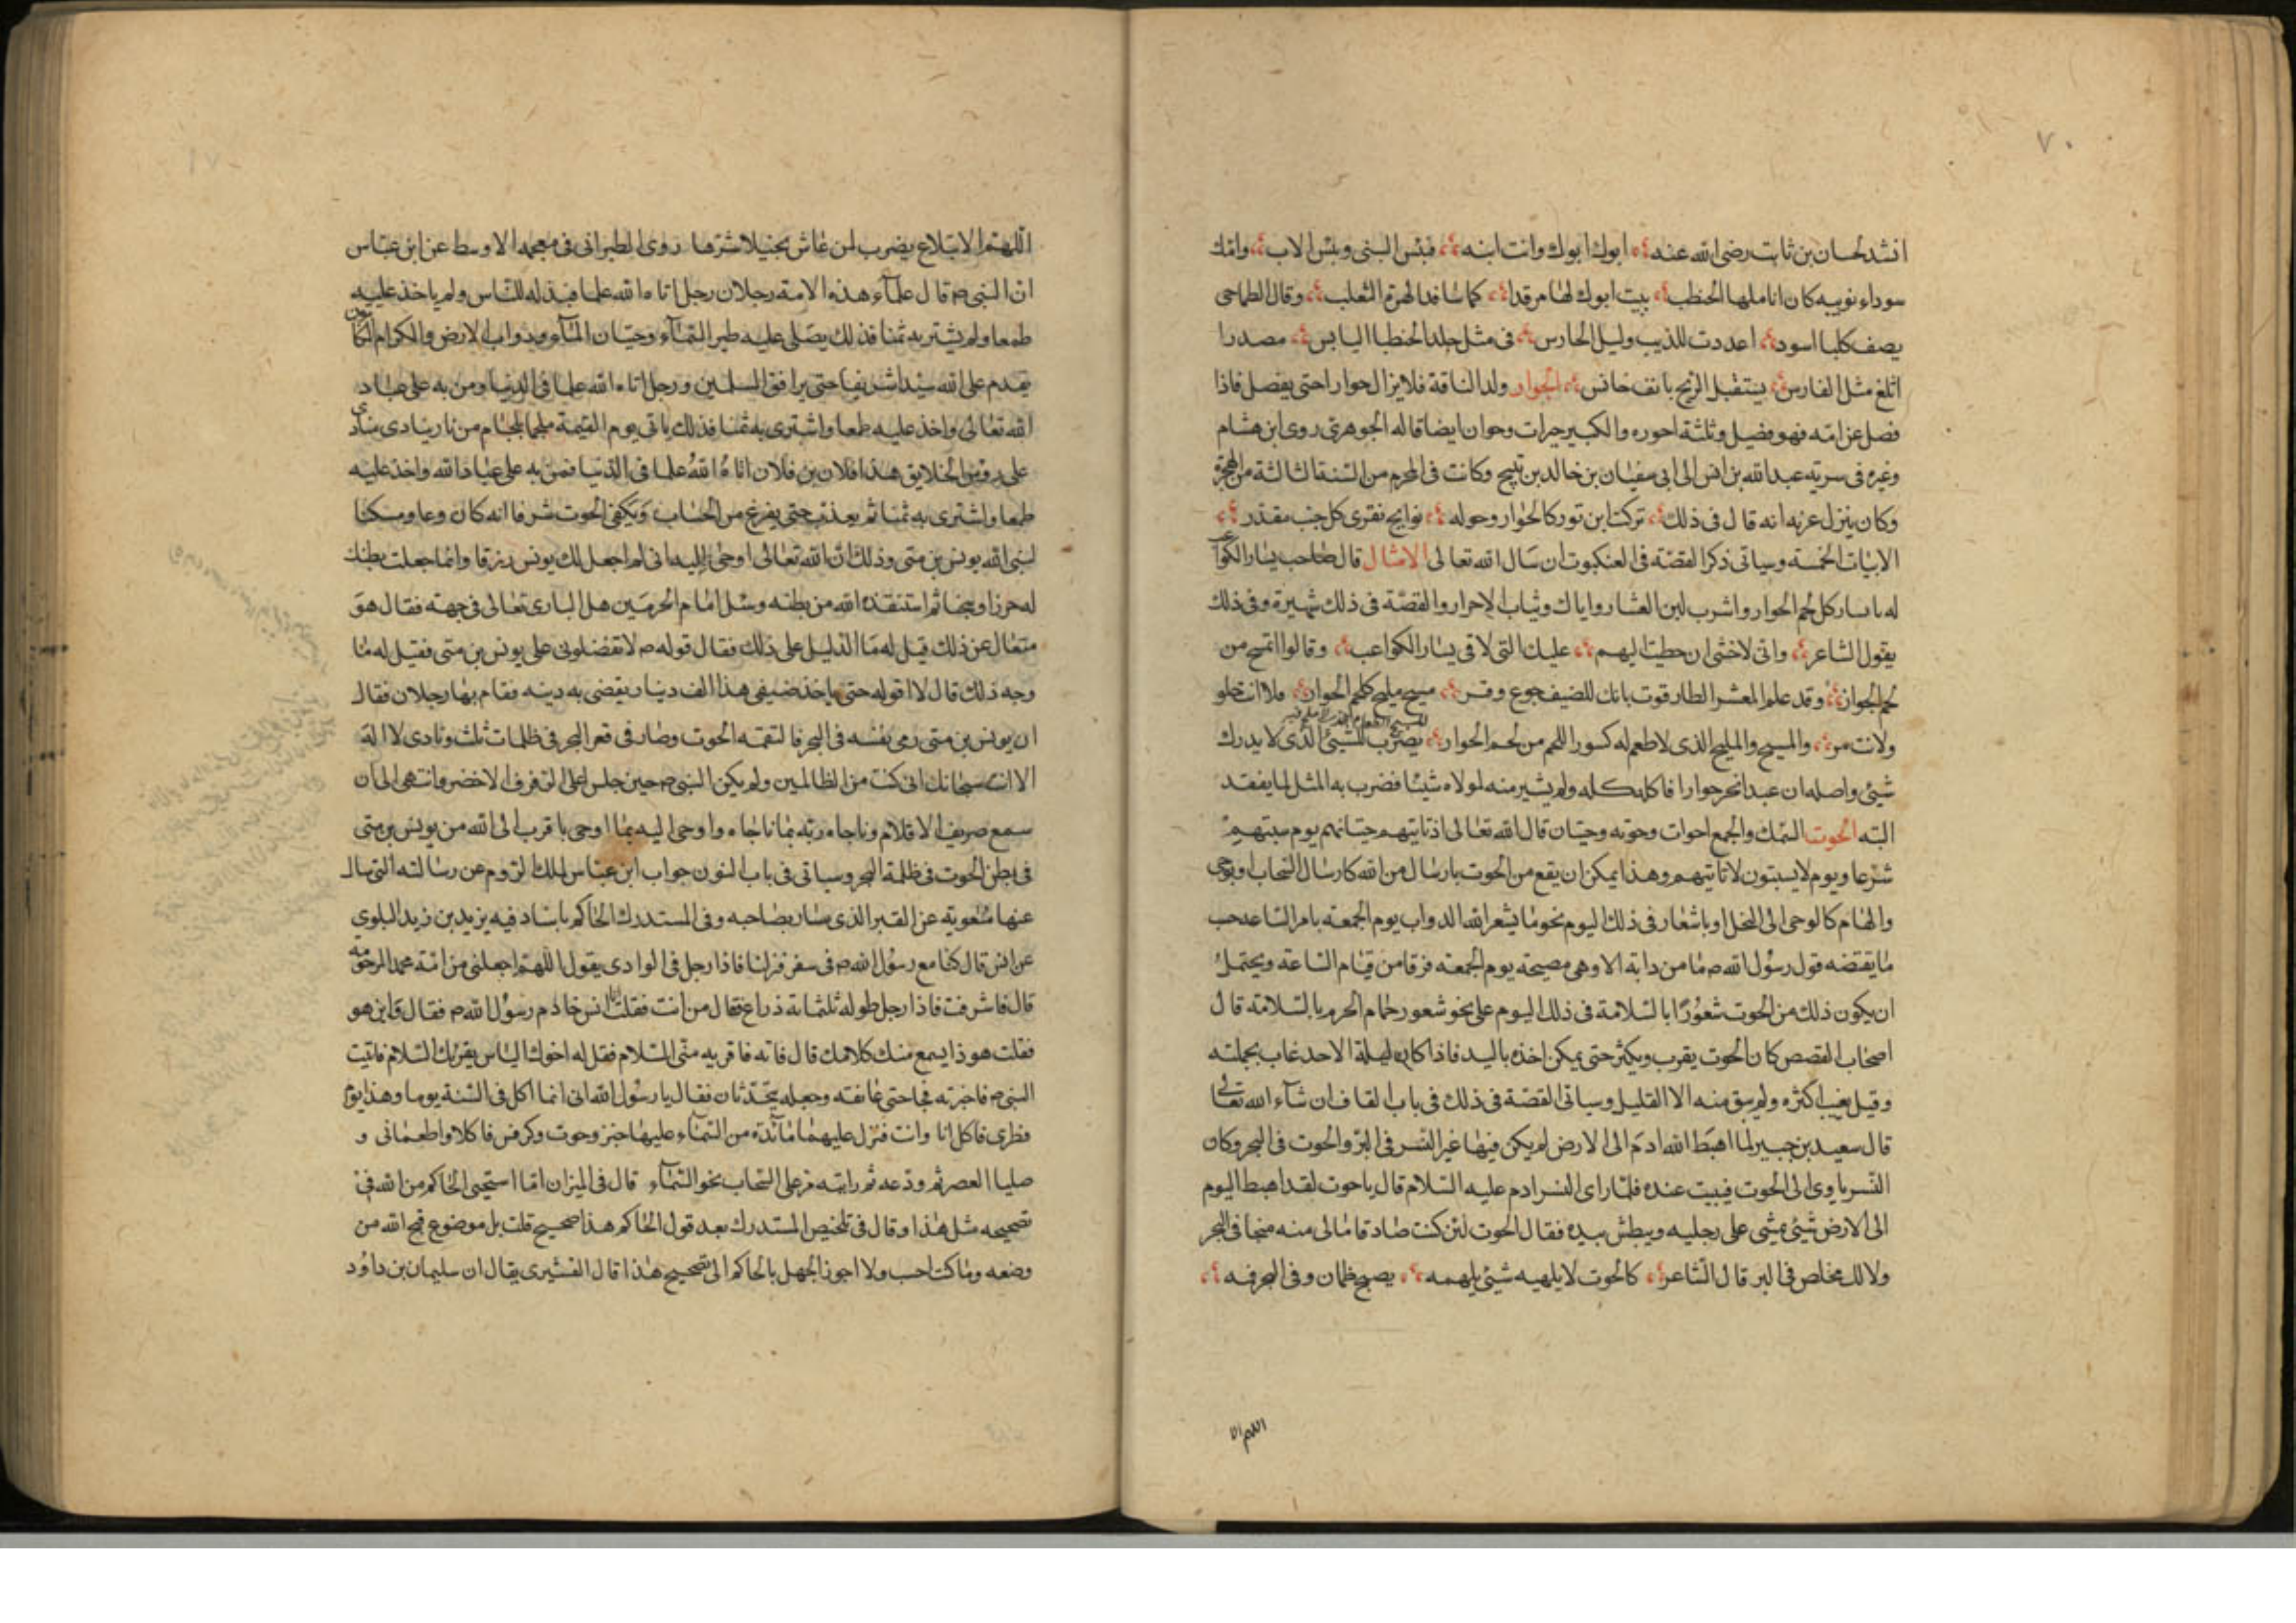 ٧٠
انشد لحسان بن ثابت رضى الله عنه ابوك ابوك وانت ابنه فبئس البنى وبئس الاب وامك
سوداء نوبيه كان اناملها الحنظب يبيت ابوك لها مرقدا كما سافد الهرة الثعلب وقال الطماحى
يصف كلبا اسود اعددت للذيب وليل الحارس فى مثل جلد الحنظبا اليابس مصدرا
اتلع مثل الفارس يستقبل الريح بانف خانس الحوار ولد الناقة فلا يزال حوارا حتى يفصل فاذا
فصل عن امه فهو فصيل وثلثة احوره والكبير حيرات وحوان ايضا قاله الجوهرى روى ابن هشام
وغيره فى سرية عبد الله بن انس الى ابى سفيان بن خالد بن نبيح وكانت فى المحرم من السنة الثالثة من الهجرة
وكان ينزل عرنه انه قال فى ذلك تركت ابن ثور كالحوار وحوله نوايح تفرى كل جيب مقدر
الابيات الخمسة وسياتى ذكر القصة فى العنكبوت ان سال الله تعالى الامثال قال صاحب يسار الكواعب
له يا يسار كل لحم الحوار واشرب لبن العشار واياك وبنات الاحرار والقصة فى ذلك شهيرة وفى ذلك
يقول الشاعر وانى لاخشى ان خطبت اليهم عليك التى لاقى يسار الكواعب وقالوا امسح من
لحم الحوار وقد علم المعشر الطارقوت بانك للضيف جوع وقر مسيح مليح كلحم الحوار فلا انت حلو
ولا انت مر والمسيح والمليح الذى لا طعم له كسور اللحم من لحم الحوار يضرب للشيئ الذى لا يدرك
شيئ واصله ان عبدا نحر حوارا فاكله كله ولم يشير منه لمولاه شيئا فضرب به المثل لما يفقد
البته الحوت السمك والجمع احوات وحوته وحيتان قال الله تعالى اذ تاتيهم حيتانهم يوم سبتهم
شرعا ويوم لا يسبتون لا تاتيهم وهذا يمكن ان يقع من الحوت بارسال من الله كارسال السحاب او بوحى
والهام كالوحى الى النحل او باشعار فى ذلك اليوم نحو ما يشعر الله الدواب يوم الجمعة بامر الساعة حسب
ما يقتضه قول رسول الله ص ما من دابة الا وهى مصيخة يوم الجمعة فرقا من قيام الساعة ويحتمل
ان يكون ذلك من الحوت شعورا بالسلامة فى ذلك اليوم على نحو شعور حمام الحرم بالسلامة قال
اصحاب القصص كان الحوت يقرب ويكثر حتى يمكن اخذه باليد فاذا كان ليلة الاحد غاب بجملته
وقيل يغيب اكثره ولم يبق منه الا القليل وسياتى القصة فى ذلك فى باب القاف ان شاء الله تعالى
قال سعيد بن جبير لما اهبط الله ادم الى الارض لم يكن فيها غير النسر فى البر والحوت فى البحر وكان
النسر ياوى الى الحوت فيبيت عنده فلما راى النسر ادم عليه السلام قال يا حوت لقد اهبط اليوم
الى الارض شيئ يمشى على رجليه ويبطش بيده فقال الحوت لئن كنت صادقا مالى منه منجا فى البحر
ولا لك مخلص فى البر قال الشاعر كالحوت لا يلهيه شيئ يلهمه يصبح ظمان وفى البحر فمه
اللهم الا
اللهم الابتلاع يضرب لمن عاش بخيلا شرها روى الطبرانى فى معجمه الاوسط عن ابن عباس
ان النبى ص قال علماء هذه الامة رجلان رجل اتاه الله علما فبذله للناس ولم ياخذ عليه
طمعا ولم يشتر به ثمنا فذلك يصلى عليه طير السماء وحيتان الماء ودواب الارض والكرام الكاتبون
يقدم على الله سيدا شريفا حتى يرافق المسلمين ورجل اتاه الله علما فى الدنيا ومن به على عباد
الله تعالى واخذ عليه طمعا واشترى به ثمنا فذلك ياتى يوم القيمة ملجما بلجام من نار ينادى مناد
على رؤس الخلايق هذا فلان بن فلان اتاه الله علما فى الدنيا فمن به على عباد الله واخذ عليه
طمعا واشترى به ثمنا ثم يعذب حتى يفرغ من الحساب ويكفى الحوت شرفا انه كان وعا ومسكنا
لنبى الله يونس بن متى وذلك ان الله تعالى اوحى اليه انى لم اجعل لك يونس رزقا وانما جعلت بطنك
له حرزا وسجنا ثم استنقذه الله من بطنه وسئل امام الحرمين هل البارى تعالى فى جهته فقال هو
متعال عن ذلك قيل له ما الدليل على ذلك فقال قوله ص لا تفضلونى على يونس بن متى فقيل له ما
وجه ذلك قال لا اقوله حتى ياخذ ضيفى هذا الف دينار يقضى به دينه فقام بها رجلان فقال
ان يونس بن متى رمى نفسه فى البحر فالتقمه الحوت وصار فى قعر البحر فى ظلمات ثلث ونادى لا اله
الا انت سبحانك انى كنت من الظالمين ولم يكن النبى ص حين جلس على الرفرف الاخضر وانتهى الى ان
سمع صريف الاقلام وناجاه ربه بما ناجاه واوحى اليه بما اوحى باقرب الى الله من يونس بن متى
فى بطن الحوت فى ظلمة البحر وسياتى فى باب النون جواب ابن عباس لملك الروم عن رسالته التى سال
عنها معوية عن القبر الذى سار بصاحبه وفى المستدرك الحاكم باسناد فيه يزيد بن زيد البلوي
عن انس قال كنا مع رسول الله ص فى سفر فنزلنا فاذا رجل فى الوادى يقول اللهم اجعلنى من امة محمد المرحومة
قال فاشرفت فاذا رجل طوله ثلثمائة ذراع فقال من انت فقلت انا انس خادم رسول الله ص فقال واين هو
فقلت هو ذا يسمع منك كلامك قال فاته فاقريه منى السلام فقل له اخوك الياس يقرئك السلام فاتيت
النبى ص فاخبرته فجا حتى عانقه وجعله يتحدثان فقال يا رسول الله انى انما اكل فى السنة يوما وهذا يوم
فطرى فاكل انا وانت فنزل عليهما مائدة من السماء عليها خبز وحوت وكرفس فاكلا واطعمانى و
صليا العصر ثم ودعه ثم رايته مر على السحاب نحو السماء قال فى الميزان اما استحيى الحاكم من الله فى
تصحيحه مثل هذا وقال فى تلخيص المستدرك بعد قول الحاكم هذا صحيح قلت بل موضوع قبح الله من
وضعه وما كنت احسب ولا اجوز الجهل بالحاكم الى تصحيح هذا قال القشيرى يقال ان سليمان بن داود